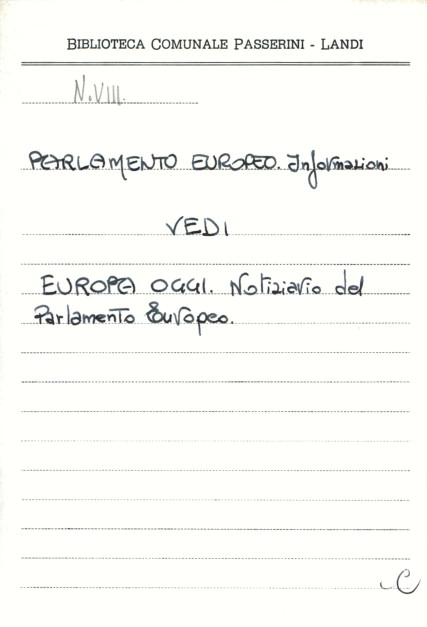 BIBLIOTECA COMUNALE PASSERINI - LANDI
N.VIII.
PARLAMENTO EUROPEO. Informazioni
VEDI
EUROPA OGGI. Notiziario del
Parlamento Europeo.
C